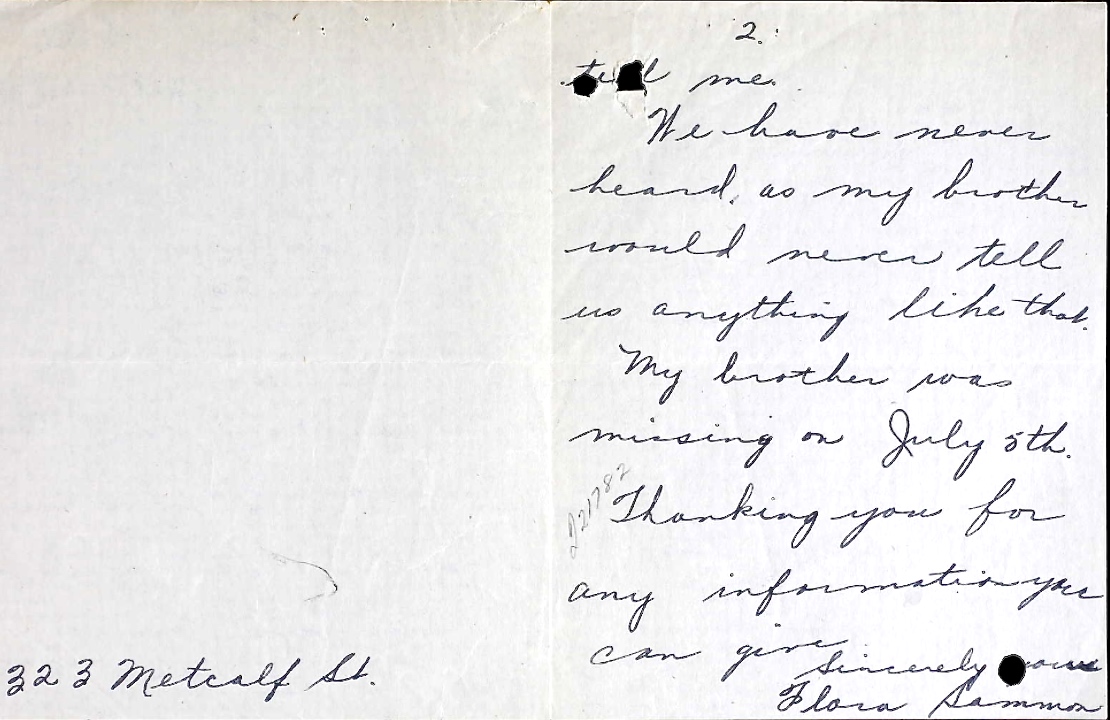 323 Metcalf St.
2.
tell me.
We have never
heard, as my brother
would never tell
us anything like that.
My brother was
missing on July 5th.
J21782
Thanking you for
any information you
can give
Sincerely yours
Flora Sammon